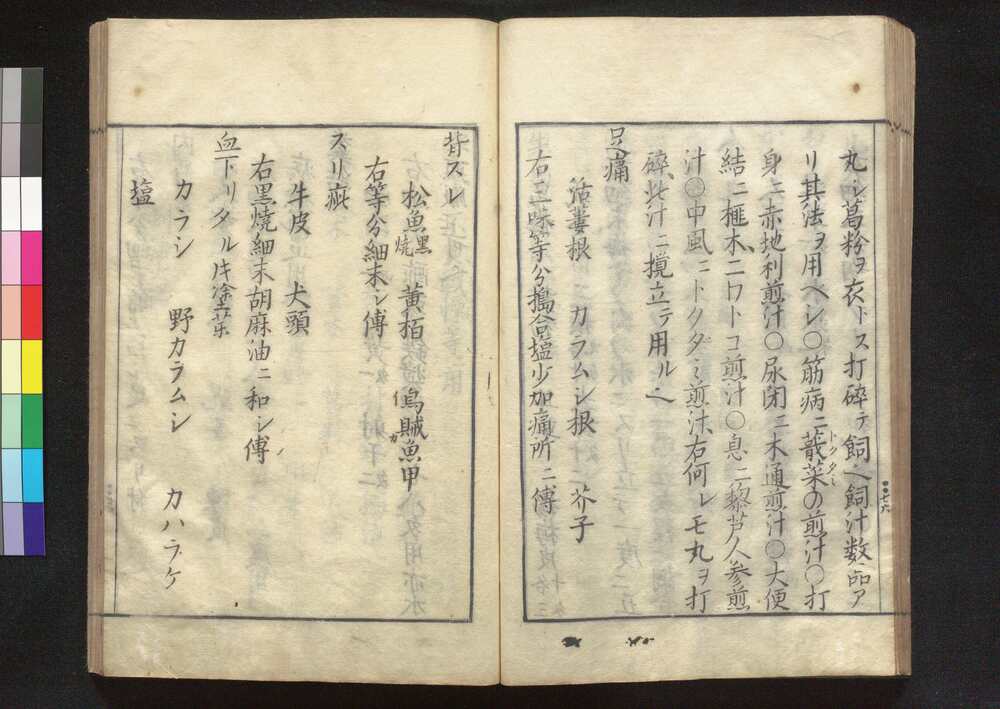 丸シ葛粉ヲ衣トス打碎テ飼ヘ飼汁数品ア
リ其法ヲ用ヘシ○筋病ニ蕺菜の煎汁○打
トクタミ
身ニ赤地利煎汁○尿閉ニ木通煎汁○大便
結ニ榧木ニワトコ煎汁○息ニ藜芦人参煎
汁○中風ニドクダミ煎汁右何レモ丸ヲ打
碎此汁ニ攪立テ用ルヘ
只痛
活蔞根 カラムシ根 芥子
右三味等分搗合塩少加痛所ニ傅
七六
背スレ
松魚黒焼 黄栢 烏賊魚甲
右等分細末シ傅
スリ疵
牛皮 犬頭
右黒焼細末胡麻油ニ和シ傅
血下リタル
カラシ 野カラムシ カハラケ
塩